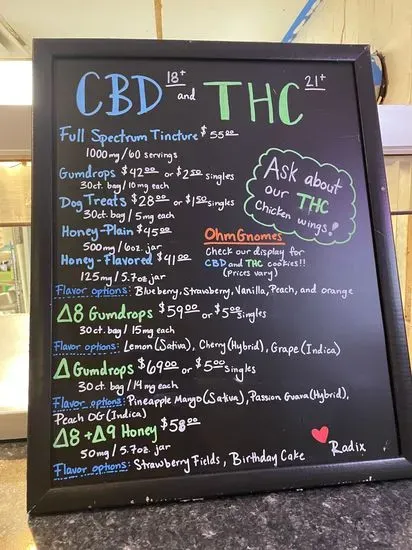 CBD 18+ and THC 21+
Full Spectrum Tincture $55.00
1000mg/60 servings
Gumdrops $42.00 or $2.50 singles
30ct. bag/10mg each
Dog Treats $28.00 or $1.50 singles
30ct. bag/5mg each
Honey-Plain $45.00
500mg/6oz. jar
Honey-Flavored $41.00
125mg/5.7oz jar
Ask about
our THC
Chicken wings!
OhmGnomes
Check our display for
CBD and THC cookies!!
(Prices vary)
Flavor options: Blueberry, Strawberry, Vanilla, Peach, and orange
Δ8 Gumdrops $59.00 or $5.00 singles
30ct. bag/15mg each
Flavor options: Lemon (Sativa), Cherry (Hybrid), Grape (Indica)
Δ Gumdrops $69.00 or $5.00 singles
30ct. bag/14mg each
Flavor options: Pineapple Mango (Sativa), Passion Guava (Hybrid),
Peach OG (Indica)
Δ8 + Δ9 Honey $58.00
50mg/5.7oz. jar
Flavor options: Strawberry Fields, Birthday Cake
Radix